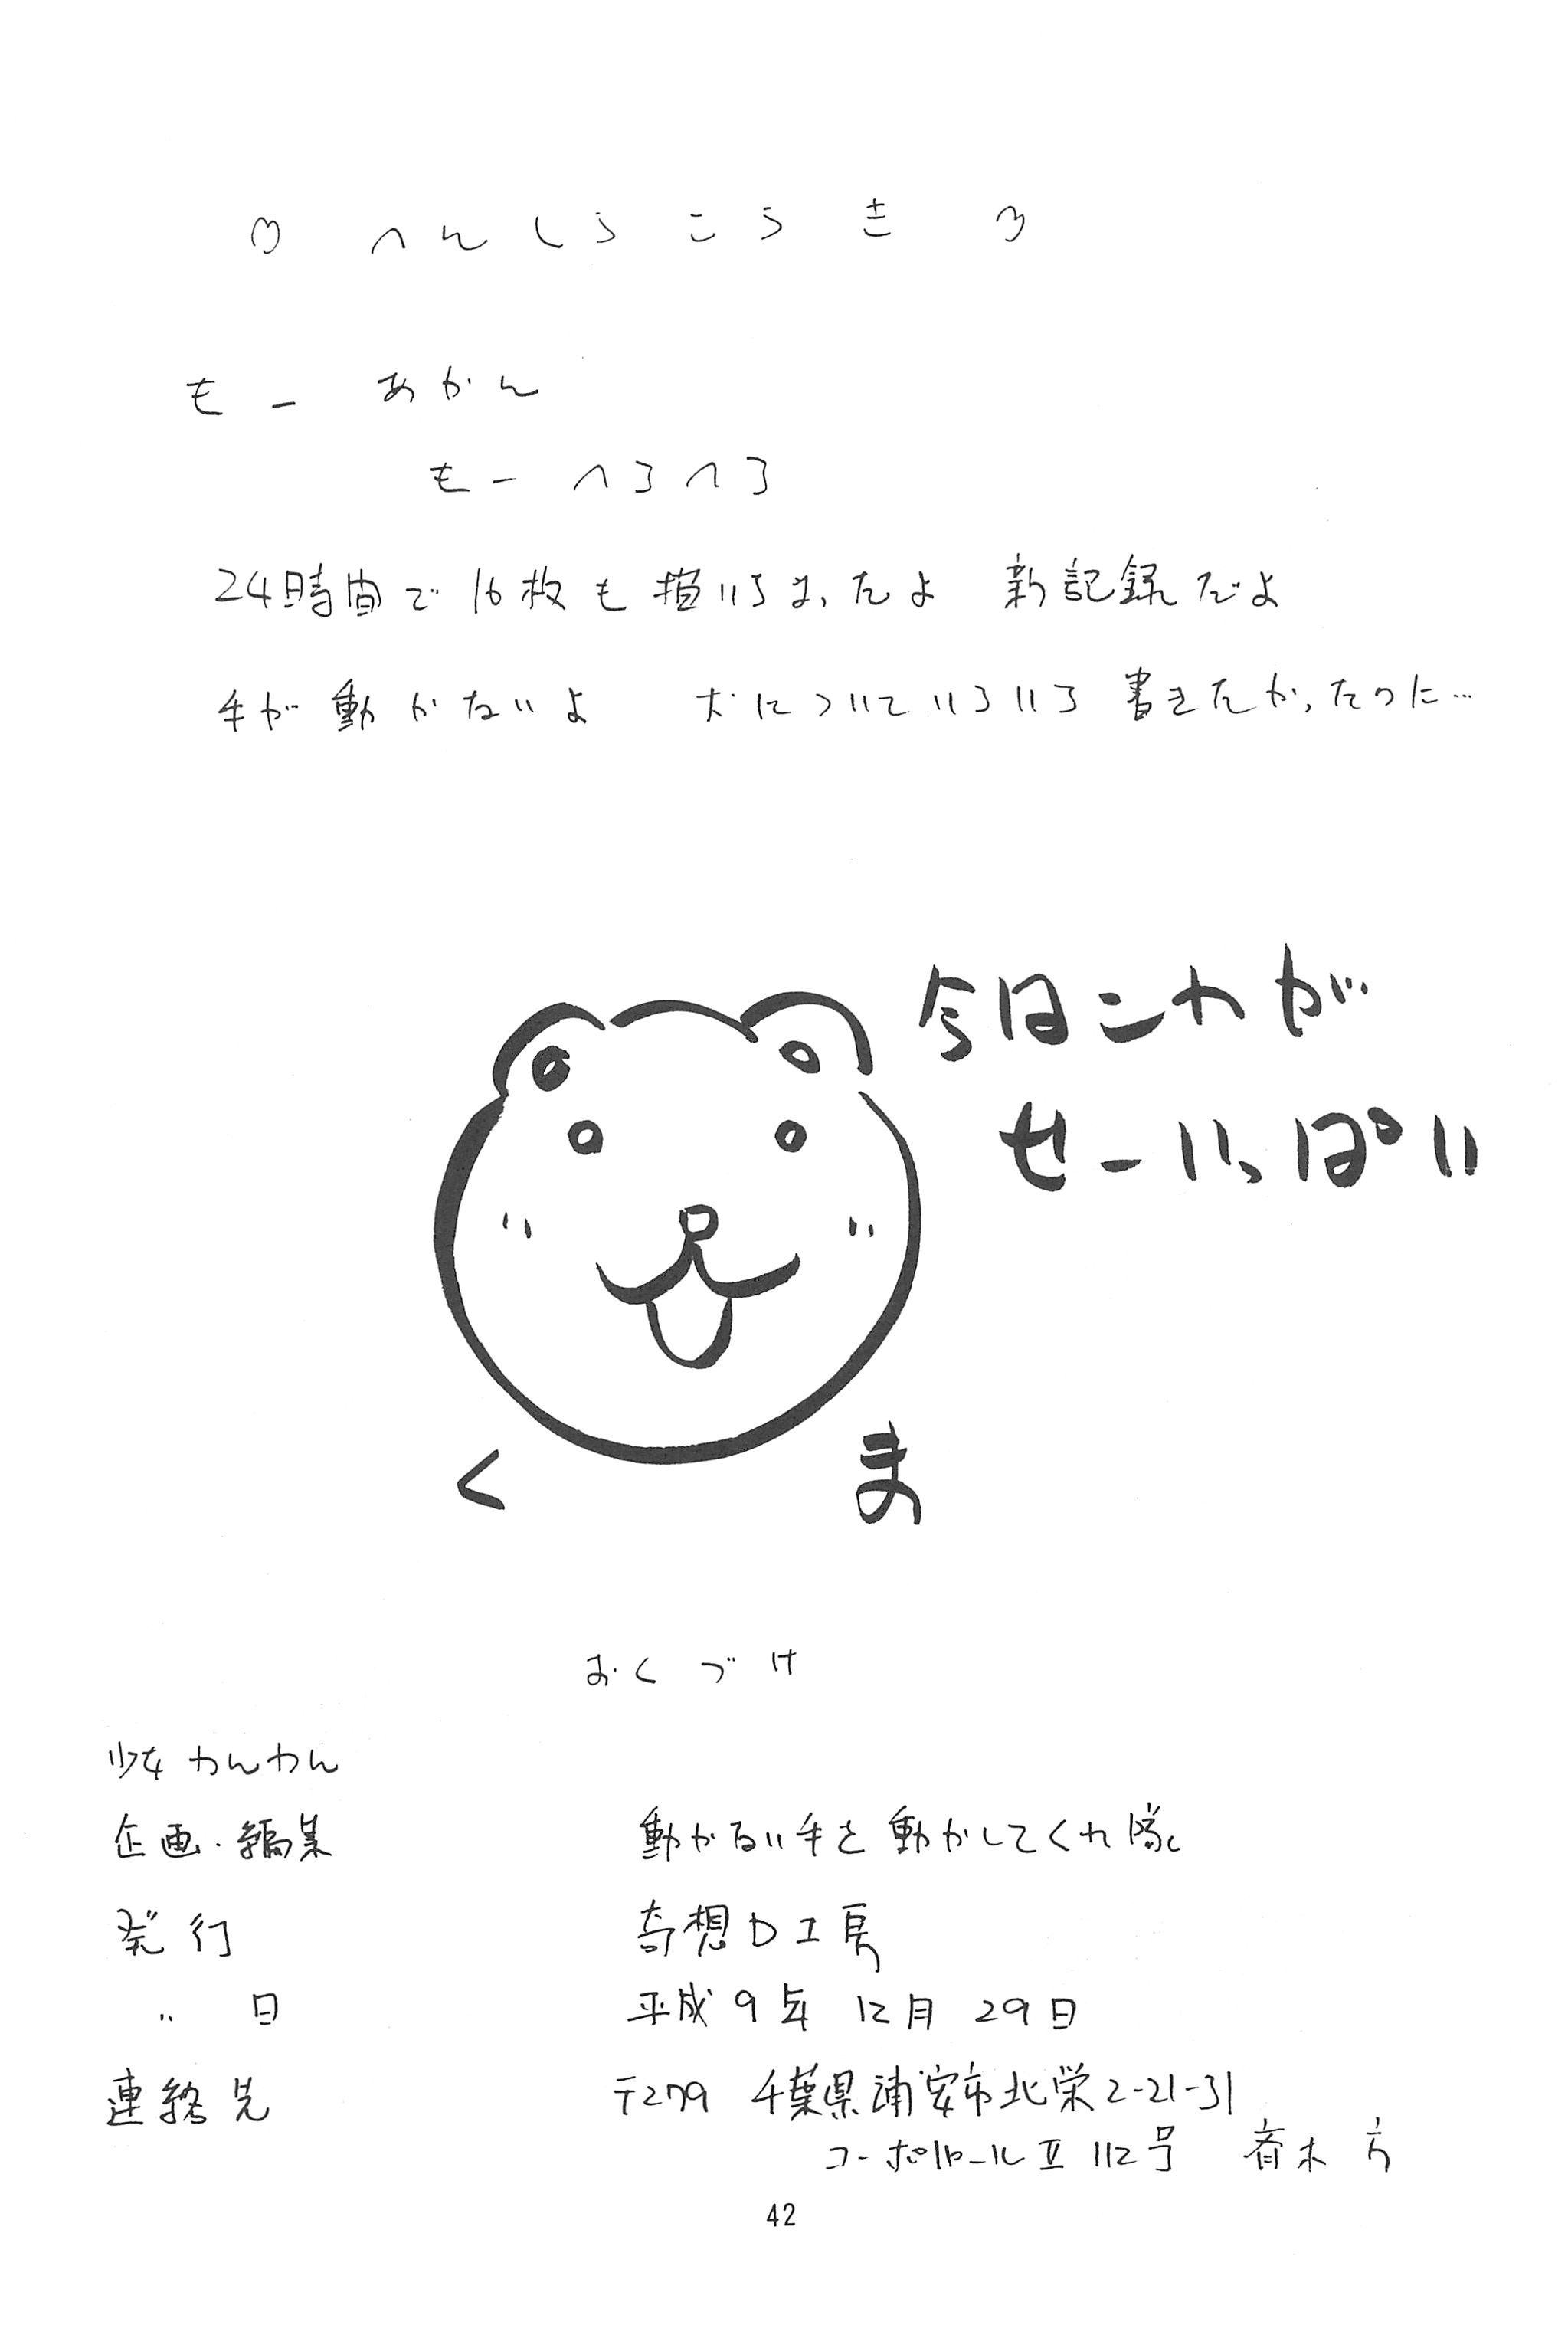 へんしうこうき
もー あかん
もー へろへろ
24時間で16枚も描いちまったよ 新記録だよ
手が動かないよ 犬についていろいろ書きたかったのに…
今はこれが
せーいっぱい
くま
おくづけ
少女わんわん
企画・編集 動かない手を動かしてくれ隊
発行 奇想D工房
〃 日 平成9年 12月 29日
連絡先 〒279 千葉県浦安市北栄2-21-31
コーポ Ⅱ 112号 木方
42